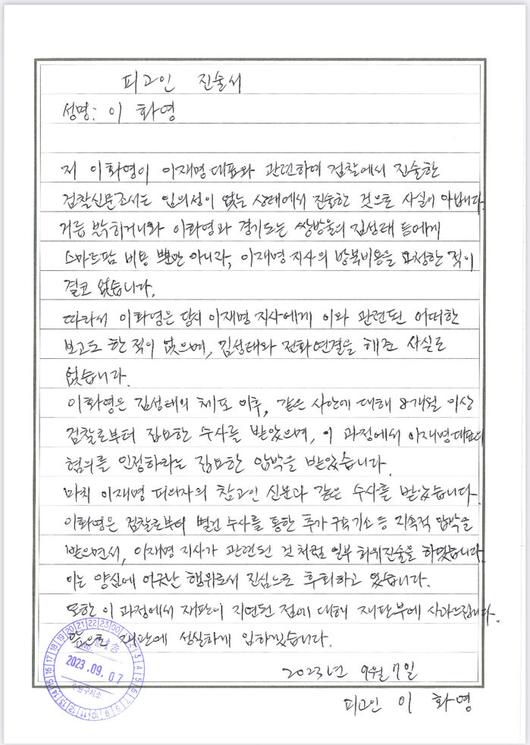 피고인 진술서
성명: 이 화영
저 이화영이 이재명 대표와 관련하여 검찰에서 진술한
검찰신문조서는 임의성이 없는 상태에서 진술한 것으로 사실이 아닙니다.
거듭 밝히거니와 이화영과 경기도는 쌍방울의 김성태 등에게
스마트팜 비용 뿐만 아니라, 이재명 지사의 방북비용을 요청한 적이
결코 없습니다.
따라서 이화영은 당시 이재명 지사에게 이와 관련된 어떠한
보고도 한 적이 없으며, 김성태와 전화연결을 해준 사실도
없습니다.
이화영은 김성태의 체포 이후, 같은 사안에 대해 8개월 이상
검찰로부터 집요한 수사를 받았으며, 이 과정에서 이재명대표의
혐의를 인정하라는 집요한 압박을 받았습니다.
마치 이재명 피의자의 참고인 신문과 같은 수사를 받았습니다.
이화영은 검찰로부터 별건 수사를 통한 추가 구속기소 등 지속적 압박을
받으면서, 이재명 지사가 관련된 것처럼 일부 허위진술을 하였습니다.
이는 양심에 어긋난 행위로서 진심으로 후회하고 있습니다.
또한 이 과정에서 재판이 지연된 점에 대해 재판부에 사과드립니다.
앞으로 재판에 성실하게 임하겠습니다.
2023년 9월 7일
피고인 이 화영
2023.09.07